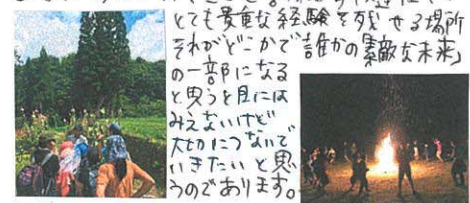 とても貴重な経験を残せる場所
それがどこかで「誰かの素敵な未来」
の一部になる
と思うと目には
みえないけど
大切につないで
いきたいと思
うのであります。